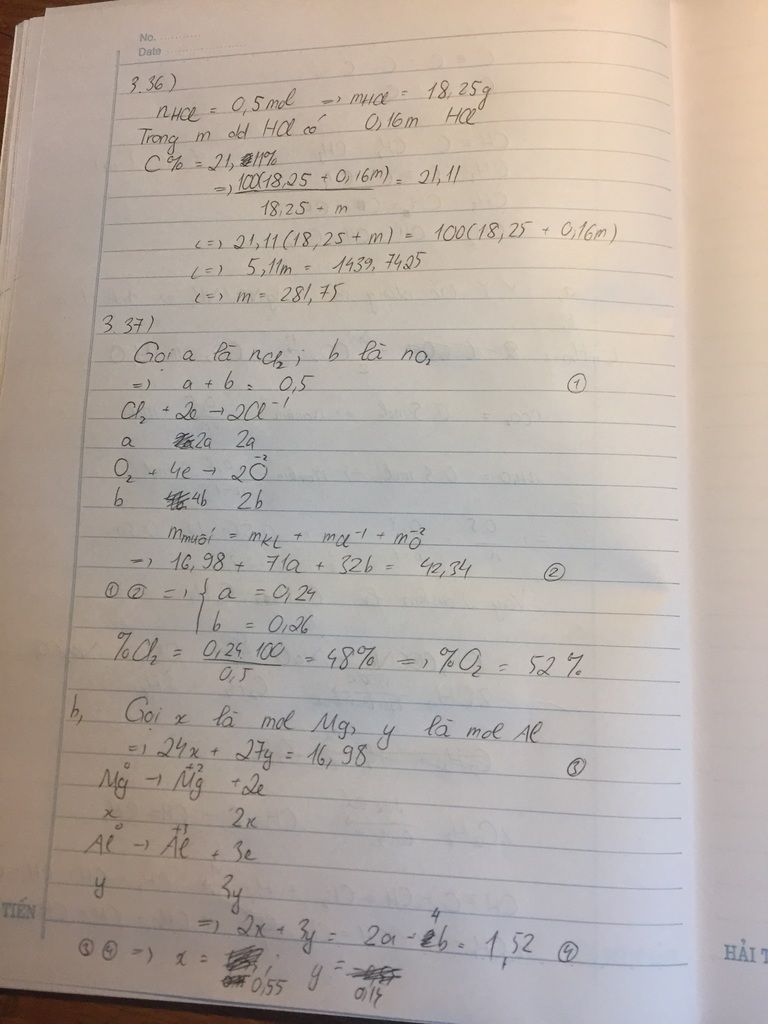 No. ............
Date ........................
3.36)
nHCl = 0,5mol => mHCl = 18,25g
Trong m dd HCl có 0,16m HCl
C% = 21,11%
=> 100(18,25 + 0,16m) = 21,11
18,25 + m
<=> 21,11(18,25 + m) = 100(18,25 + 0,16m)
<=> 5,11m = 1439,7425
<=> m = 281,75
3.37)
Gọi a là nCl₂; b là nO₂
=> a + b = 0,5 ①
Cl₂ + 2e → 2Cl⁻¹
a 2a 2a
O₂ + 4e → 2O⁻²
b 4b 2b
mmuối = mKL + mCl⁻¹ + mO⁻²
=> 16,98 + 71a + 32b = 42,34 ②
① ② => { a = 0,24
b = 0,26
%Cl₂ = 0,24 100 = 48% => %O₂ = 52%
0,5
b, Gọi x là mol Mg, y là mol Al
=> 24x + 27y = 16,98 ③
Mg⁰ → Mg⁺² + 2e
x 2x
Al⁰ → Al⁺³ + 3e
y 3y
=> 2x + 3y = 2a - 4b = 1,52 ④
③ ④ => x = 0,55 ; y = 0,14
TIẾN
HẢI T